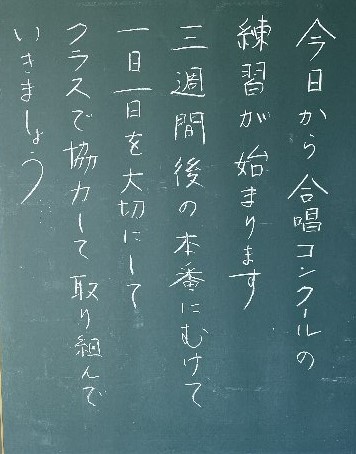 今日から合唱コンクールの
練習が始まります
三週間後の本番にむけて
一日一日を大切にして
クラスで協力して取り組んで
いきましょう